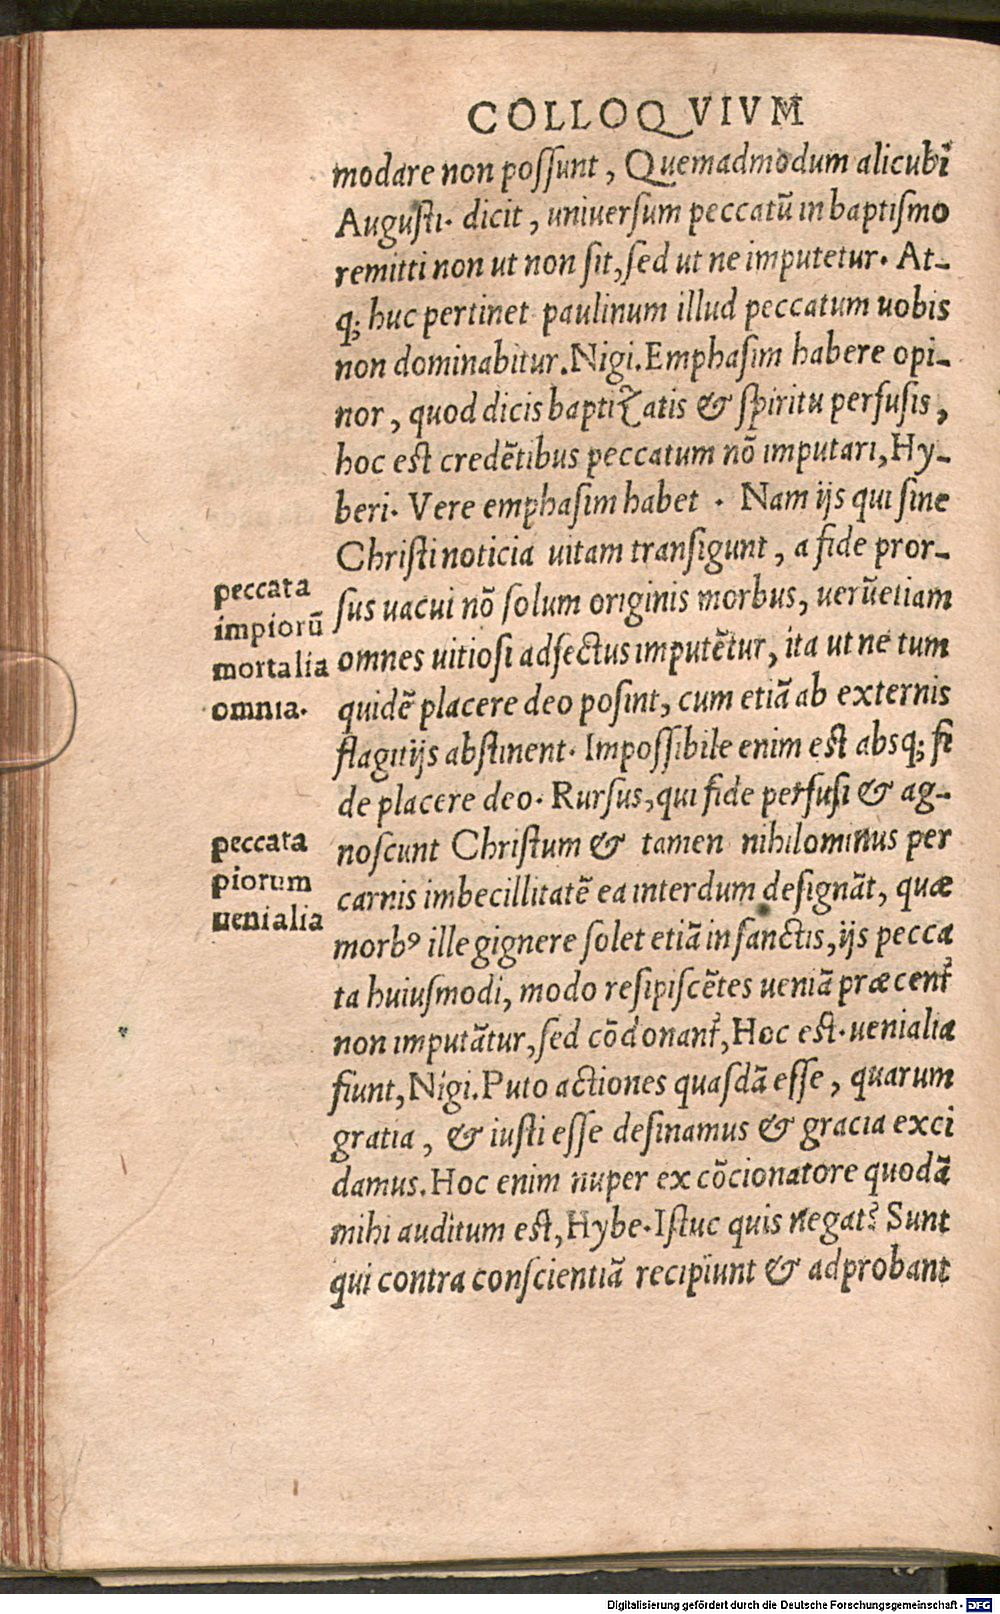 COLLOQVIVM
modare non possunt, Quemadmodum alicubi
Augusti. dicit, uniuersum peccatū in baptismo
remitti non ut non sit, sed ut ne imputetur. At-
q; huc pertinet paulinum illud peccatum uobis
non dominabitur. Nigi. Emphasim habere opi-
nor, quod dicis baptizatis & spiritu perfusis,
hoc est credētibus peccatum nō imputari, Hy-
beri. Vere emphasim habet . Nam ijs qui sine
Christi noticia uitam transigunt, a fide pror-
sus uacui nō solum originis morbus, uerūetiam
omnes uitiosi adfectus imputētur, ita ut ne tum
quidē placere deo possint, cum etiā ab externis
flagitijs abstinent. Impossibile enim est absq; fi
de placere deo. Rursus, qui fide perfusi & ag-
noscunt Christum & tamen nihilominus per
carnis imbecillitatē ea interdum designāt, quæ
morbꝰ ille gignere solet etiā in sanctis, ijs pecca
ta huiusmodi, modo resipiscētes ueniā præcent᷑
non imputātur, sed cōdonant᷑, Hoc est. uenialia
fiunt, Nigi. Puto actiones quasdā esse, quarum
gratia, & iusti esse desinamus & gracia exci
damus. Hoc enim nuper ex cōcionatore quodā
mihi auditum est, Hybe. Istuc quis negat? Sunt
qui contra conscientiā recipiunt & adprobant
peccata
impiorū
mortalia
omnia.
peccata
piorum
uenialia
Digitalisierung gefördert durch die Deutsche Forschungsgemeinschaft - DFG